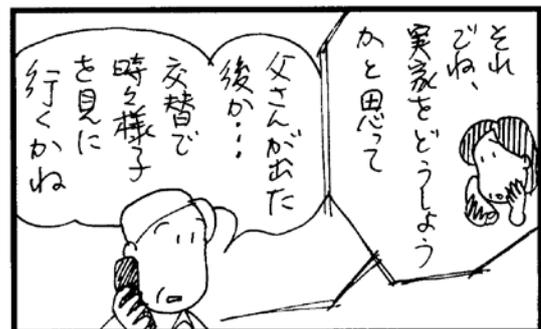 それ
でね、
実家をどうしよう
かと思って
父さんが出た
後か…
交替で
時々様子
を見に
行くかね